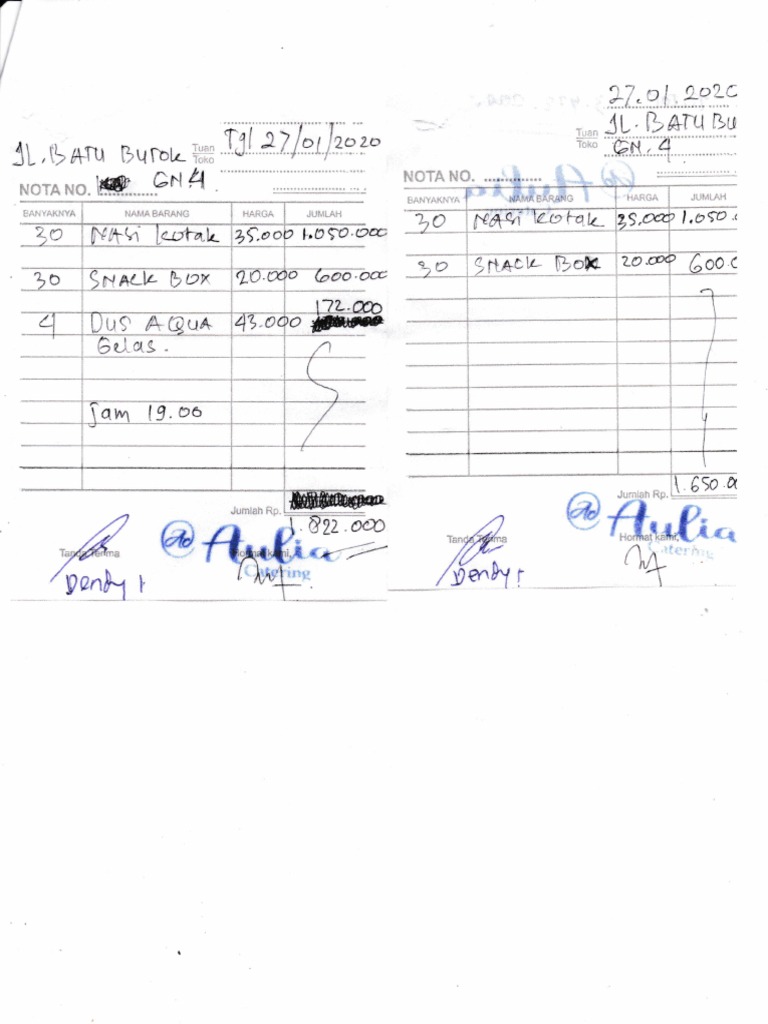 Tgl 27/01/2020
JL. BATU BUTOK
Tuan
Toko
NOTA NO. GN.4
BANYAKNYA NAMA BARANG HARGA JUMLAH
30 NASi kotak 35.000 1.050.000
30 SNACK BOX 20.000 600.000
172.000
4 DUS AQUA 43.000
Gelas.
Jam 19.00
Jumlah Rp.
1.822.000
Tanda Terima Hormat kami,
Aulia
Catering
Dendy
27.01.2020
Tuan JL. BATU BU
Toko GN. 4
NOTA NO.
BANYAKNYA NAMA BARANG HARGA JUMLAH
30 NASi kotak 35.000 1.050.
30 SNACK BOX 20.000 600.0
Jumlah Rp. 1.650.0
Tanda Terima Hormat kami,
Aulia
Catering
Dendy